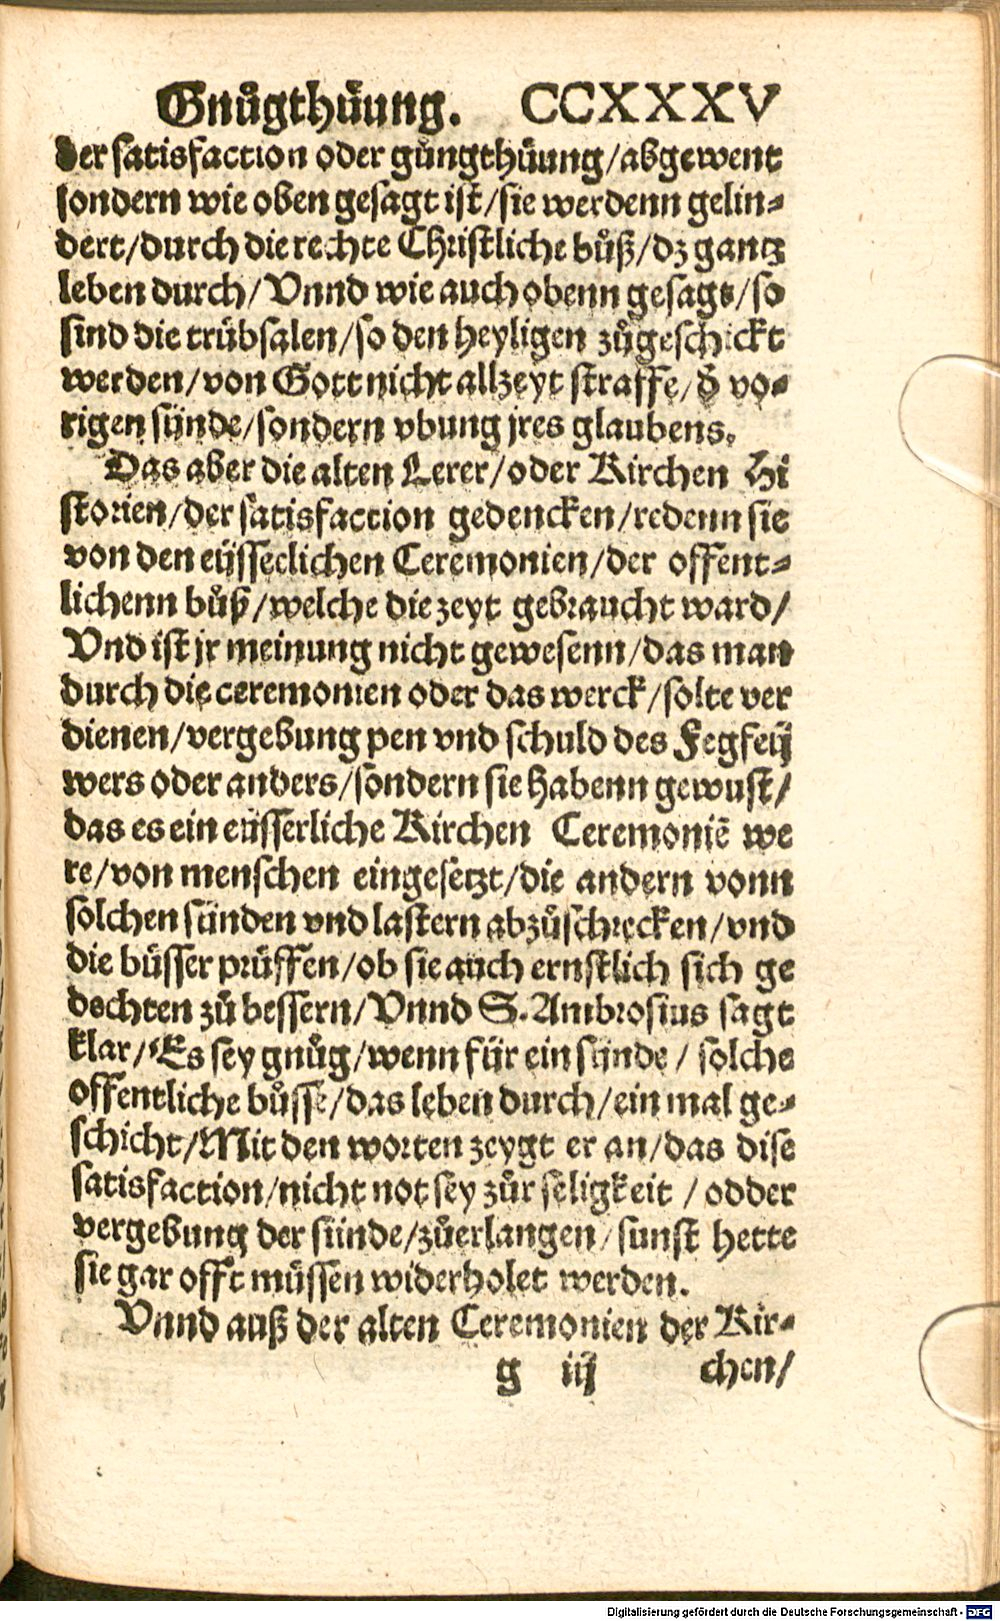 Gnůgthüung. CCXXXV
der satisfaction oder gůngthüung/abgewent
sondern wie oben gesagt ist/sie werdenn gelin-
dert/durch die rechte Christliche bůß/dz gantz
leben durch/Vnnd wie auch obenn gesagt/so
sind die trübsalen/so den heyligen zůgeschickt
werden/von Gott nicht allzeyt straffe/d̕ vo-
rigen sünde/sondern vbung jres glaubens.
Das aber die alten Lerer/oder Kirchen Hi
storien/der satisfaction gedencken/redenn sie
von den eüsserlichen Ceremonien/der offent-
lichenn bůß/welche die zeyt gebraucht ward/
Vnd ist jr meinung nicht gewesenn/das man
durch die ceremonien oder das werck/solte ver
dienen/vergebung pen vnd schuld des Fegfeü
wers oder anders/sondern sie habenn gewust/
das es ein eüsserliche Kirchen Ceremoniē we
re/von menschen eingesetzt/die andern vonn
solchen sünden vnd lastern abzůschrecken/vnd
die büsser prüffen/ob sie auch ernstlich sich ge
dechten zů bessern/Vnnd S. Ambrosius sagt
klar/Es sey gnůg/wenn für ein sünde/ solche
offentliche bůsse/das leben durch/ein mal ge-
schicht/Mit den worten zeygt er an/das dise
satisfaction/nicht not sey zůr seligkeit / odder
vergebung der sünde/zůerlangen/sunst hette
sie gar offt müssen widerholet werden.
Vnnd auß der alten Ceremonien der Kir-
g iij chen/
Digitalisierung gefördert durch die Deutsche Forschungsgemeinschaft - DFG